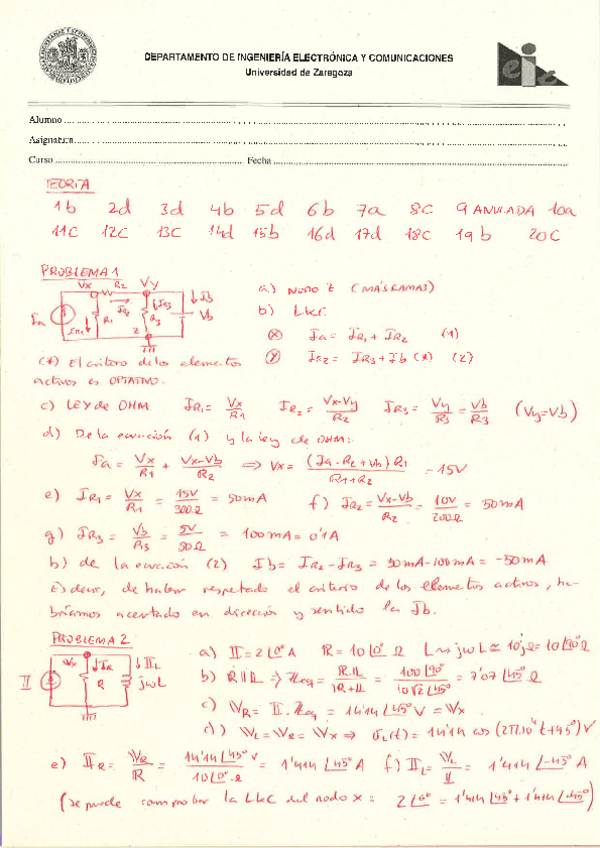 DEPARTAMENTO DE INGENIERÍA ELECTRÓNICA Y COMUNICACIONES
Universidad de Zaragoza
Alumno
Asignatura
Curso Fecha
TEORÍA
1b 2d 3d 4b 5d 6b 7a 8c 9 ANULADA 10a
11c 12c 13c 14d 15b 16d 17d 18c 19b 20c
PROBLEMA 1
Vx R2 Vy
Ia IR1 R1 IR2 IR3 R3 Ib Vb
z
a) NUDO Z (MÁS RAMAS)
b) LKC
(x) Ia = IR1 + IR2 (1)
(y) IR2 = IR3 + Ib (*) (2)
(*) El criterio de los elementos
activos es OPTATIVO.
c) LEY de OHM IR1 = Vx/R1 IR2 = (Vx-Vy)/R2 IR3 = Vy/R3 = Vb/R3 (Vy=Vb)
d) De la ecuación (1) y la ley de OHM:
Ia = Vx/R1 + (Vx-Vb)/R2 => Vx = (Ia·R2+Vb)R1/(R1+R2) = 15V
e) IR1 = Vx/R1 = 15V/300Ω = 50mA f) IR2 = (Vx-Vb)/R2 = 10V/200Ω = 50mA
g) IR3 = Vb/R3 = 5V/50Ω = 100mA = 0'1A
h) de la ecuación (2) Ib = IR2 - IR3 = 50mA - 100mA = -50mA
Es decir, de haber respetado el criterio de los elementos activos, ha-
bríamos acertado en dirección y sentido la Ib.
PROBLEMA 2
II Vx IR R IL jωL
a) II = 2∠0° A R = 10∠0° Ω L → jωL ≃ 10jΩ = 10∠90° Ω
b) R||L => Zeq = R·L/(R+L) = 100∠90°/10√2∠45° = 7'07∠45° Ω
c) VR = II·Zeq = 14'14∠45° V = Vx
d) VL = VR = Vx => vL(t) = 14'14 cos (2π10⁴t+45°) V
e) IR = VR/R = 14'14∠45° V/10∠0° Ω = 1'414∠45° A f) IL = VL/L = 1'414∠-45° A
(se puede comprobar la LKC del nodo x: 2∠0° = 1'414∠45° + 1'414∠-45°)